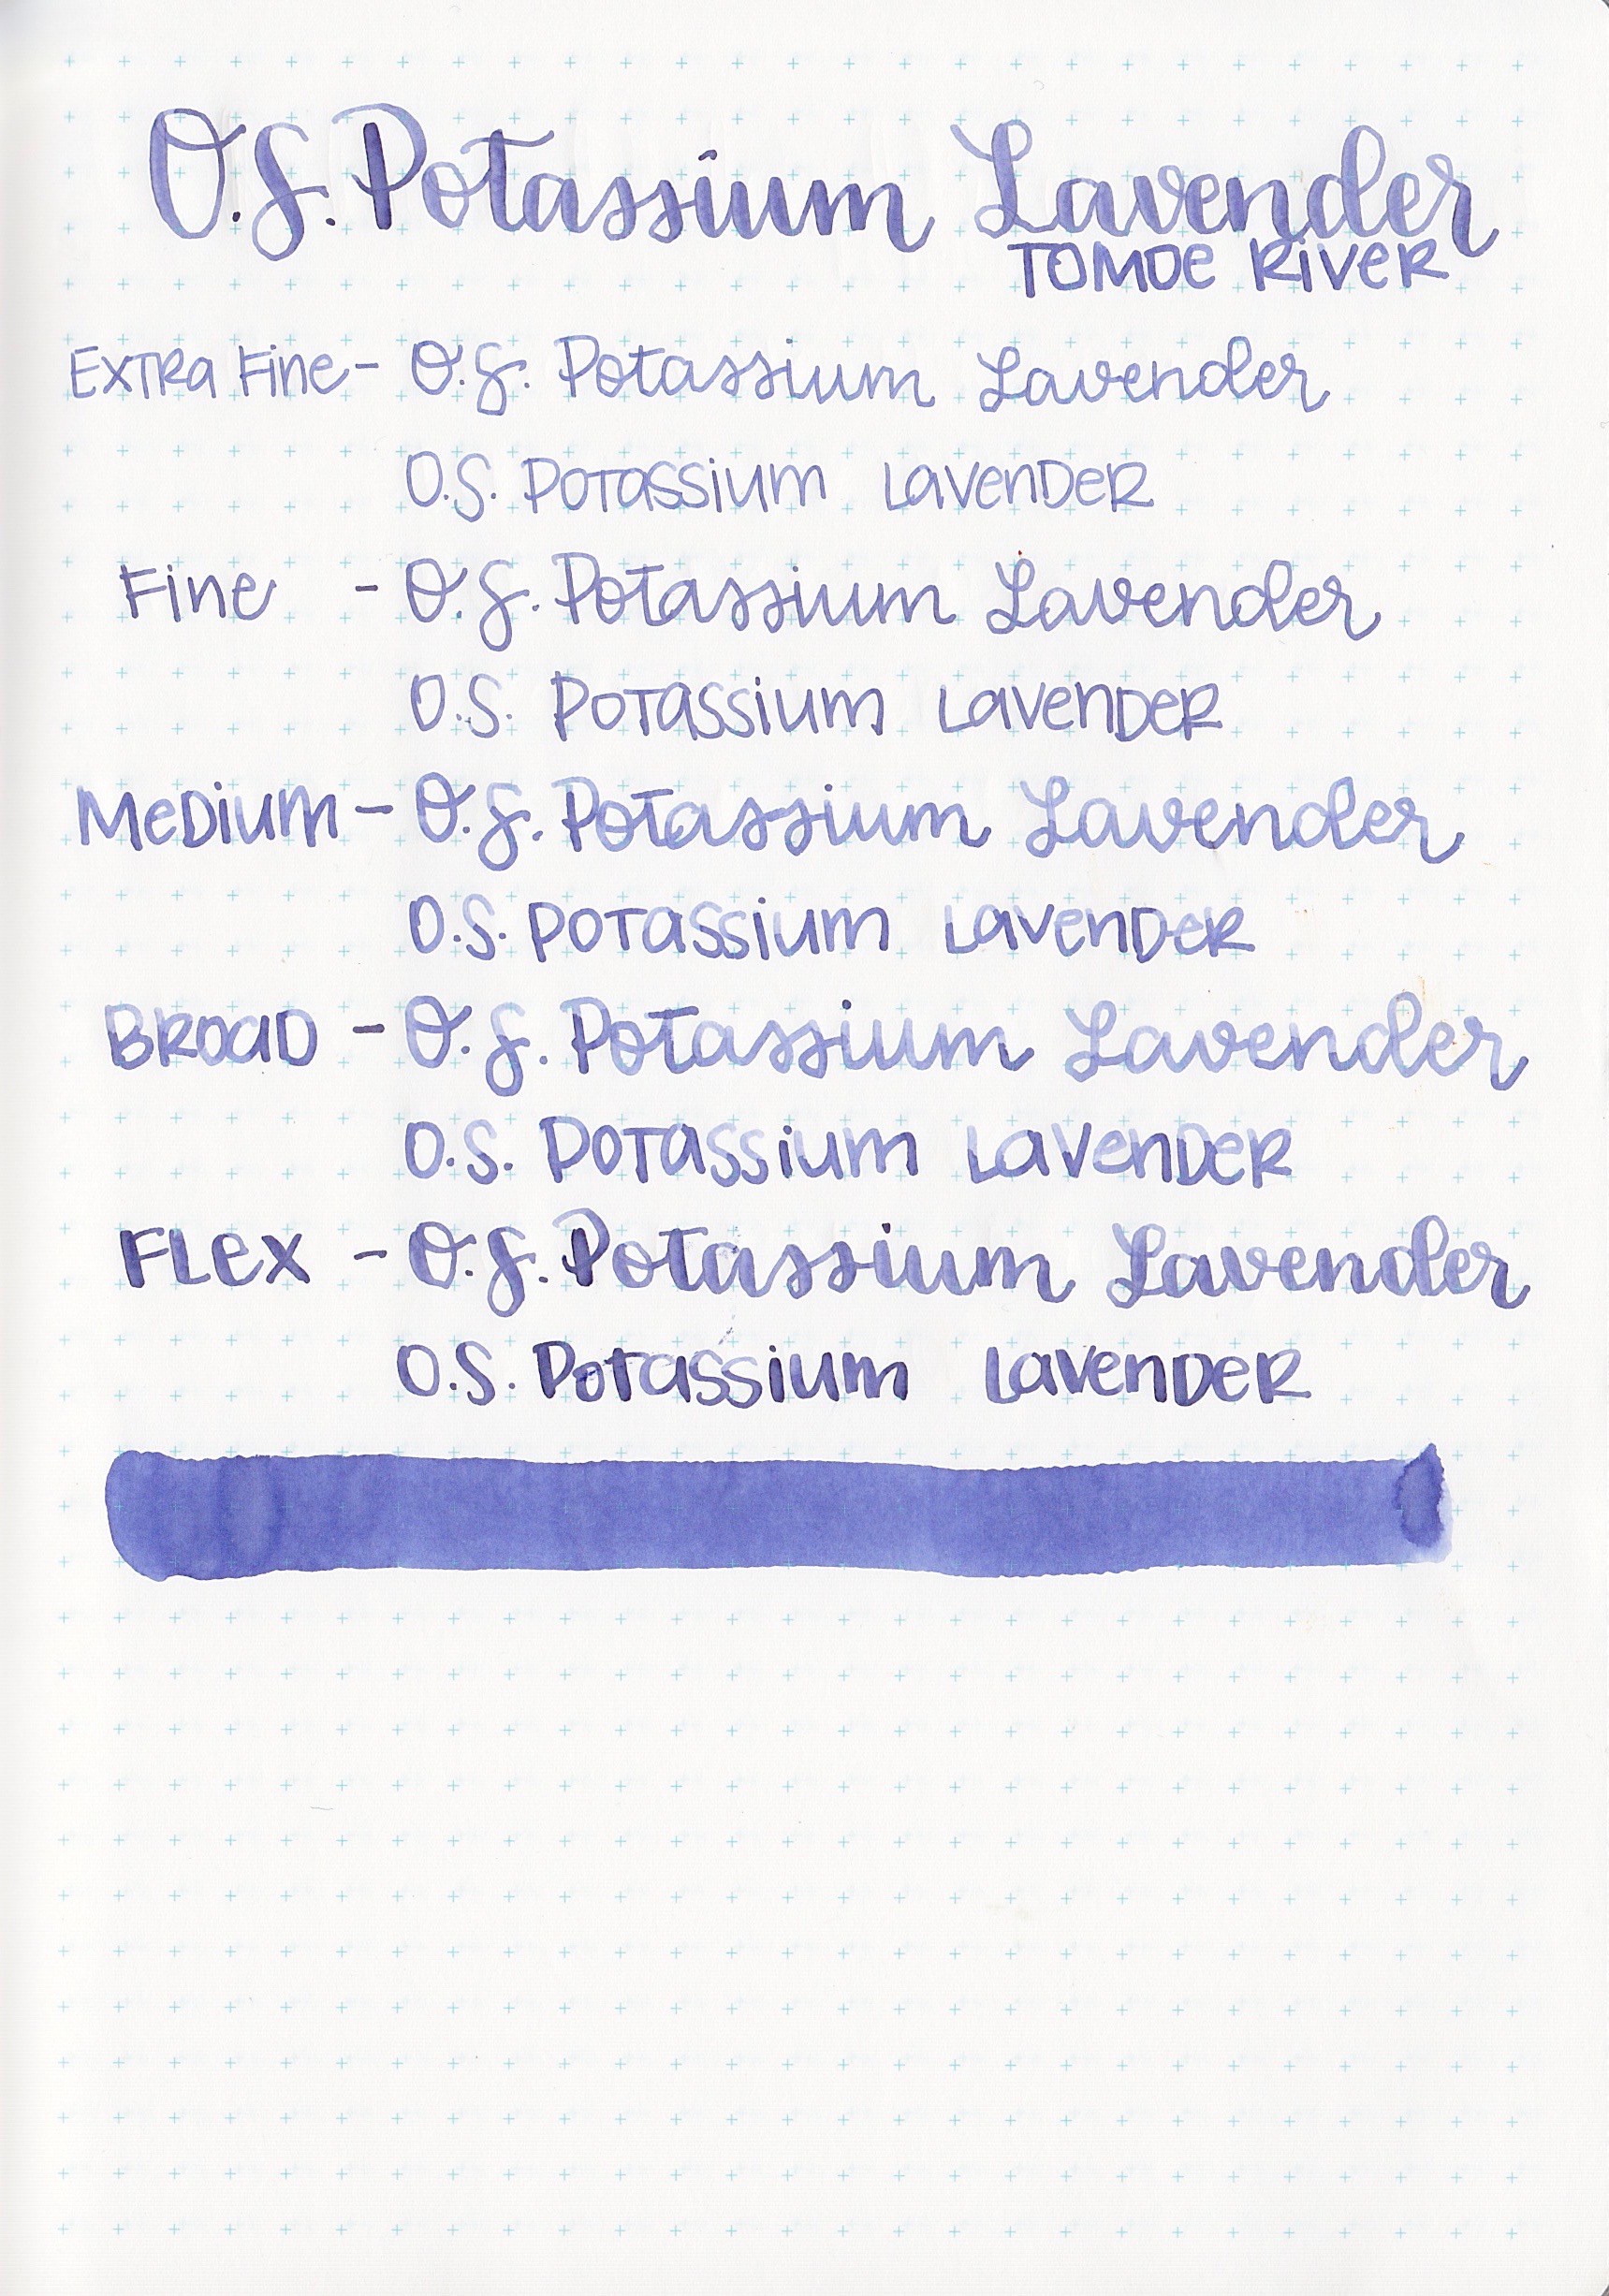 O.S. Potassium Lavender
TOMOE RIVER
EXTRA FINE - O.S. Potassium Lavender
O.S. POTASSIUM LAVENDER
FINE - O.S. Potassium Lavender
O.S. POTASSIUM LAVENDER
MEDIUM - O.S. Potassium Lavender
O.S. POTASSIUM LAVENDER
BROAD - O.S. Potassium Lavender
O.S. POTASSIUM LAVENDER
FLEX - O.S. Potassium Lavender
O.S. POTASSIUM LAVENDER